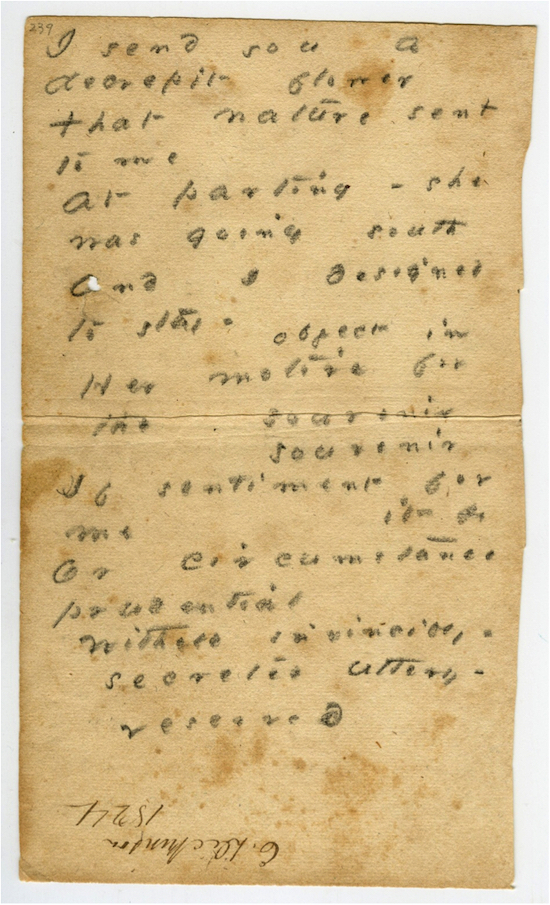 239
I send you a
decrepit flower
that nature sent
to me
At parting - she
was going south
And I designed
to stay - object in
Her motive for
the souvenir
souvenir
If sentiment for
me it be
Or circumstances
prudential
Withheld invincibly -
secretes utterly -
reserved
E. Dickinson